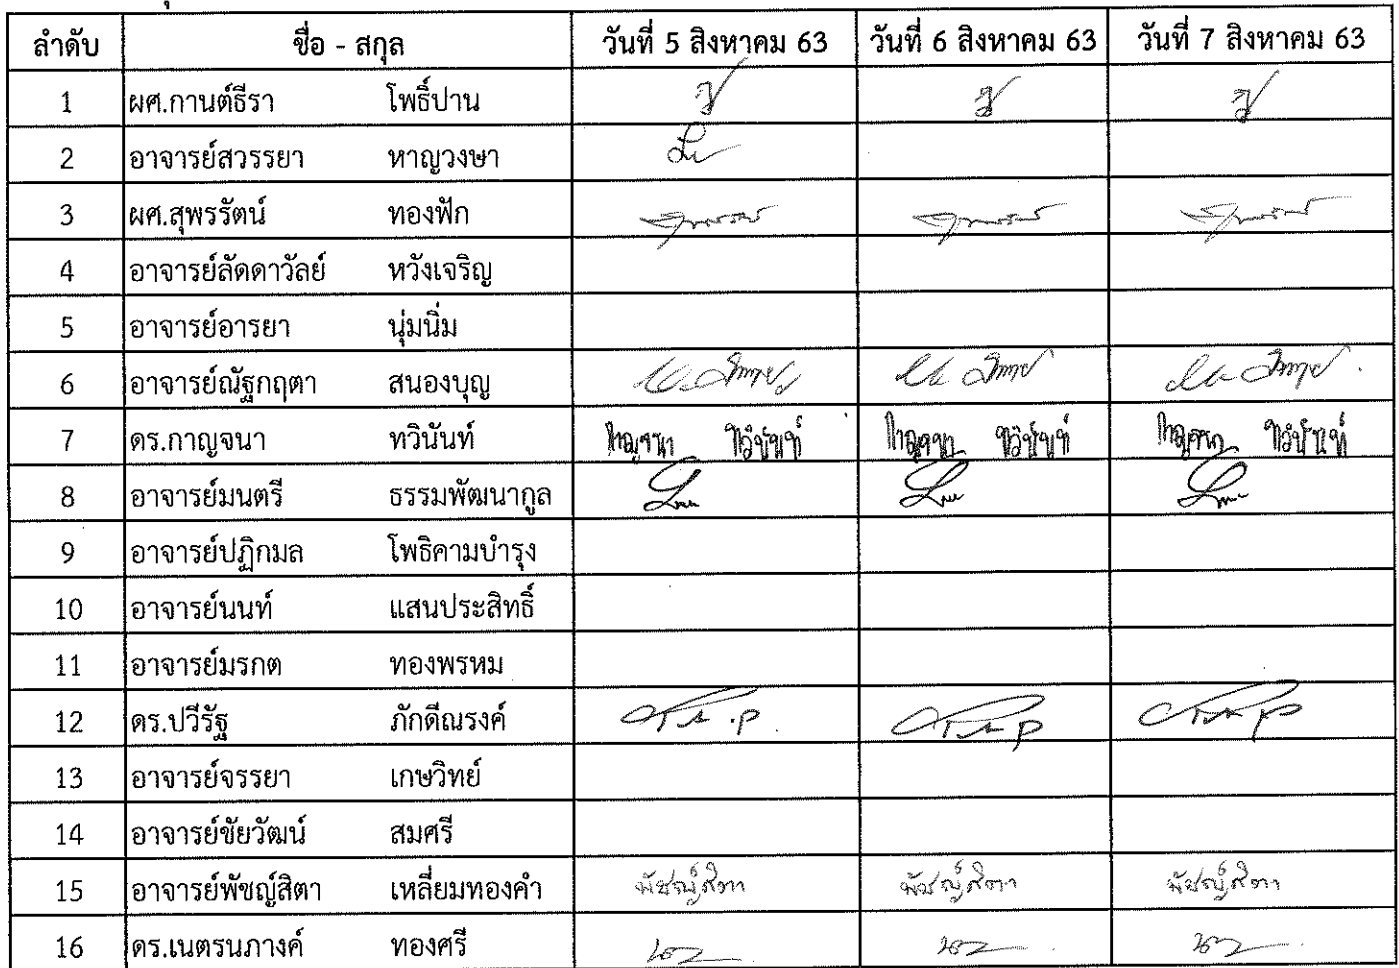 ลำดับ ชื่อ - สกุล วันที่ 5 สิงหาคม 63 วันที่ 6 สิงหาคม 63 วันที่ 7 สิงหาคม 63
1 ผศ.กานต์ธีรา โพธิ์ปาน
2 อาจารย์สวรรยา หาญวงษา
3 ผศ.สุพรรัตน์ ทองฟัก
4 อาจารย์ลัดดาวัลย์ หวังเจริญ
5 อาจารย์อารยา นุ่มนิ่ม
6 อาจารย์ณัฐกฤตา สนองบุญ
7 ดร.กาญจนา ทวินันท์ กาญจนา ทวินันท์ กาญจนา ทวินันท์ กาญจนา ทวินันท์
8 อาจารย์มนตรี ธรรมพัฒนากูล
9 อาจารย์ปฏิกมล โพธิคามบำรุง
10 อาจารย์นนท์ แสนประสิทธิ์
11 อาจารย์มรกต ทองพรหม
12 ดร.ปวีรัฐ ภักดีณรงค์
13 อาจารย์จรรยา เกษวิทย์
14 อาจารย์ชัยวัฒน์ สมศรี
15 อาจารย์พัชญ์สิตา เหลี่ยมทองคำ พัชญ์สิตา พัชญ์สิตา พัชญ์สิตา
16 ดร.เนตรนภางค์ ทองศรี